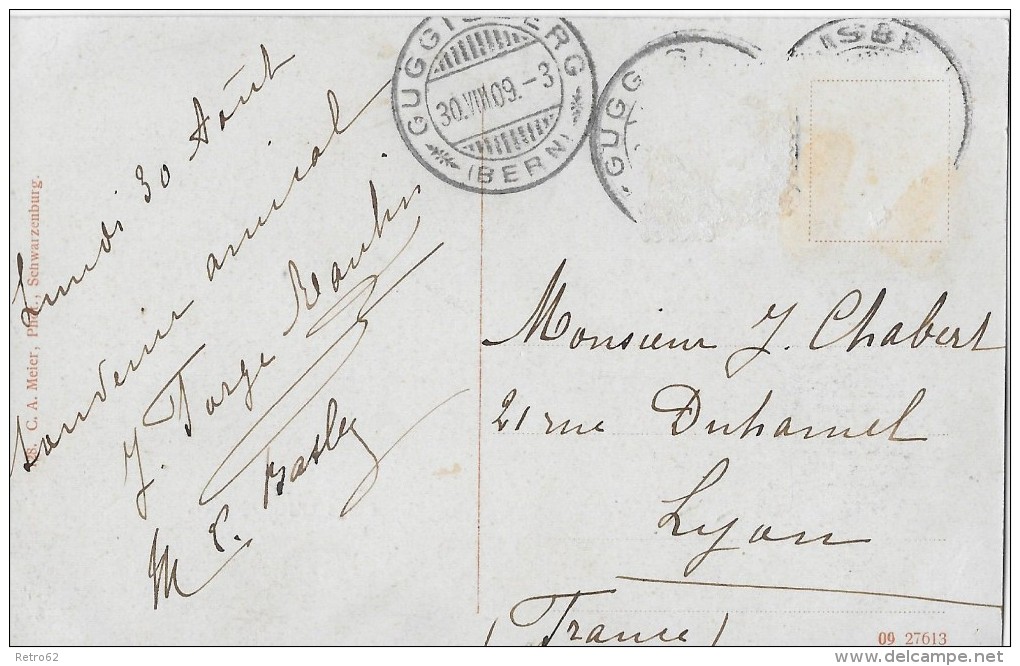 GUGGISBERG
30.VIII.09.-3
(BERN)
GUGG
ISBE
Lundi 30 Août
Souvenir amical
J.
M E.
C. A. Meier, Phot., Schwarzenburg.
Monsieur J. Chabert
21 rue Duhamel
Lyon
(France)
09 27613
Retro62
delcampe.net